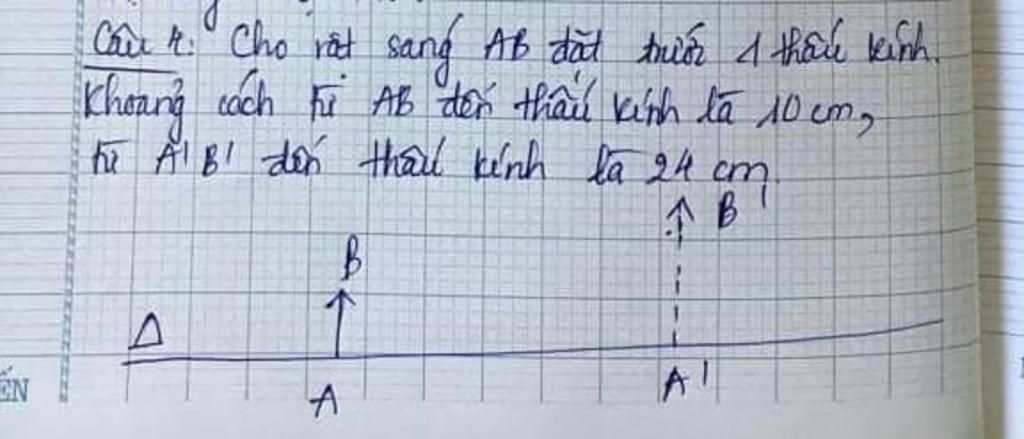 Câu 4: Cho vật sáng AB đặt trước 1 thấu kính.
Khoảng cách từ AB đến thấu kính là 10 cm,
từ A'B' đến thấu kính là 24 cm.
B'
B
Δ
A
A'
ẾN